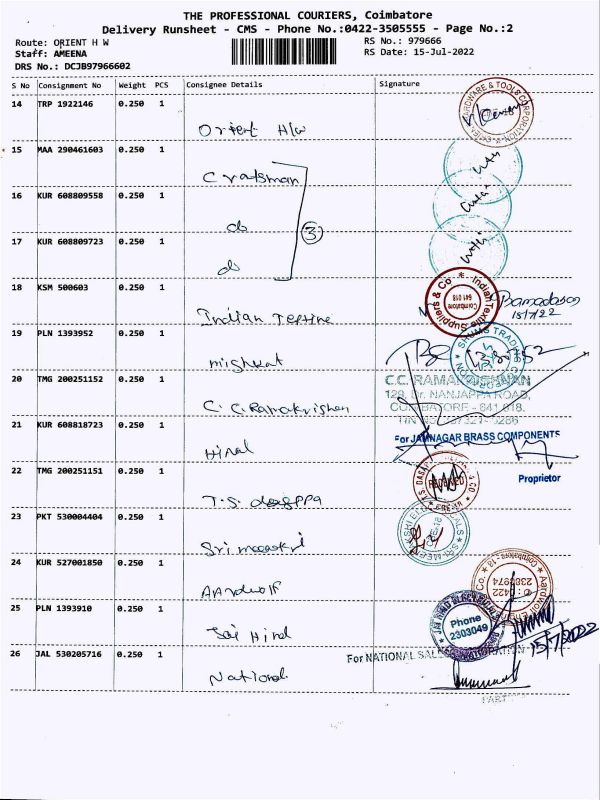 THE PROFESSIONAL COURIERS, Coimbatore
Delivery Runsheet - CMS - Phone No.:0422-3505555 - Page No.:2
Route: ORIENT H W
RS No.: 979666
Staff: AMEENA
RS Date: 15-Jul-2022
DRS No.: DCJB97966602
S No Consignment No Weight PCS Consignee Details Signature
14 TRP 1922146 0.250 1
Orient H/W
HARDWARE & TOOLS CORPORATION
15 MAA 290461603 0.250 1
Craftsman
16 KUR 608809558 0.250 1
do
3
17 KUR 608809723 0.250 1
do
18 KSM 500603 0.250 1
Indian Textile
Indian Textile Suppliers & Co
Coimbatore
641 018
Ramadason
15/7/22
19 PLN 1393952 0.250 1
mishkat
20 TMG 200251152 0.250 1
C. C. Ramakrishan
C.C. RAMAKRISHNAN
129, Dr. NANJAPPA ROAD,
COIMBATORE - 641 018.
21 KUR 608818723 0.250 1
Hiral
For JAMNAGAR BRASS COMPONENTS
Proprietor
22 TMG 200251151 0.250 1
T.S. dasappa
RECEIVED
23 PKT 530004404 0.250 1
Sri meenakshi
24 KUR 527001850 0.250 1
Aardwolf
25 PLN 1393910 0.250 1
Jai Hind
Phone
2303049
15/7/2022
26 JAL 530205716 0.250 1
National
For NATIONAL SALES CORPORATION